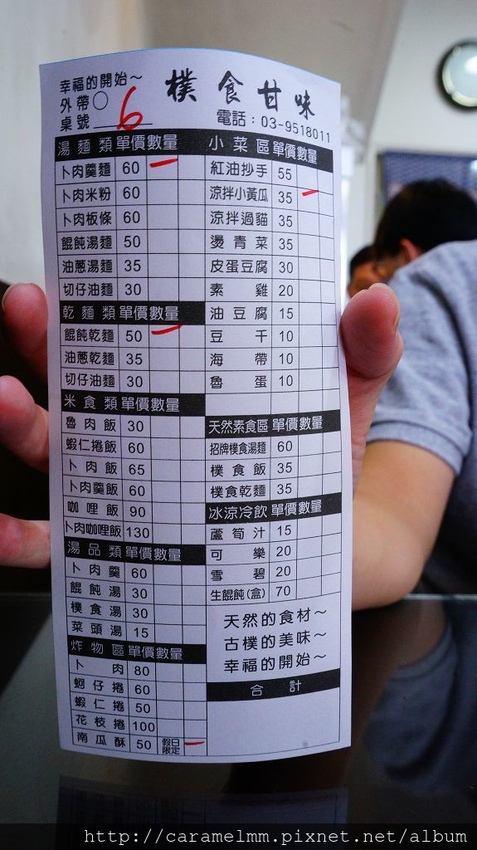 幸福的開始～
外帶○
桌號 6
樸食甘味
電話：03-9518011
湯麵類 單價 數量
卜肉羹麵 60
卜肉米粉 60
卜肉板條 60
餛飩湯麵 50
油蔥湯麵 35
切仔油麵 30
乾麵類 單價 數量
餛飩乾麵 50
油蔥乾麵 35
切仔油麵 30
米食類 單價 數量
魯肉飯 30
蝦仁捲飯 60
卜肉飯 65
卜肉羹飯 60
咖哩飯 90
卜肉咖哩飯 130
湯品類 單價 數量
卜肉羹 60
餛飩湯 30
樸食湯 30
菜頭湯 15
炸物區 單價 數量
卜肉 80
蚵仔捲 60
蝦仁捲 50
花枝捲 100
南瓜酥 50 假日限定
小菜區 單價 數量
紅油抄手 55
涼拌小黃瓜 35
涼拌過貓 35
燙青菜 35
皮蛋豆腐 30
素雞 20
油豆腐 15
豆干 10
海帶 10
魯蛋 10
天然素食區 單價 數量
招牌樸食湯麵 60
樸食飯 35
樸食乾麵 35
冰涼冷飲 單價 數量
蘆筍汁 15
可樂 20
雪碧 20
生餛飩(盒) 70
天然的食材～
古樸的美味～
幸福的開始～
合計
http://caramelmm.pixnet.net/album